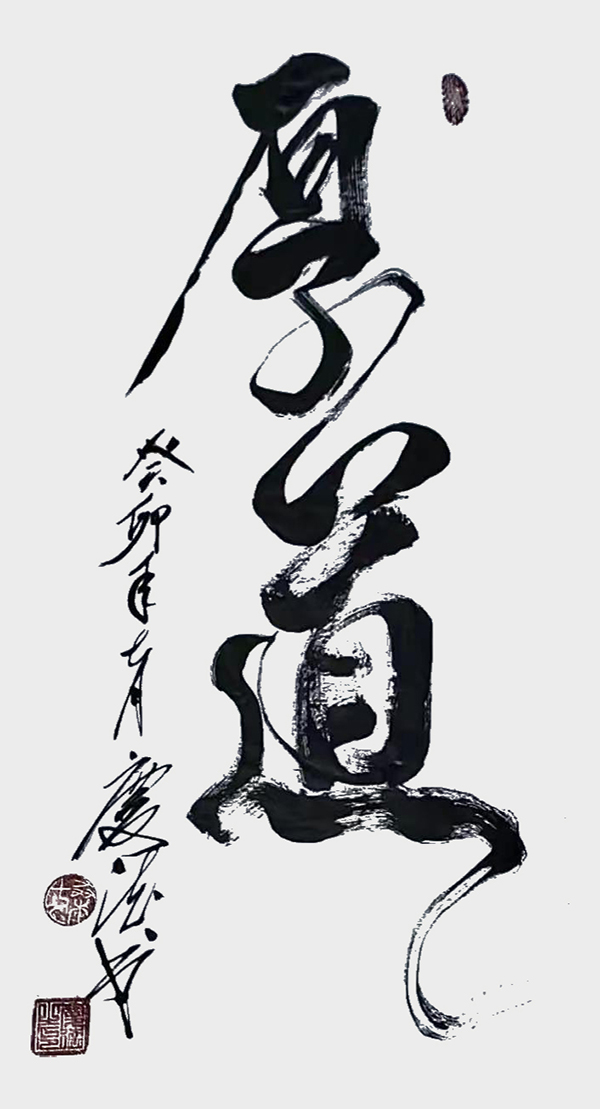 厚道
癸卯年七月慶法书